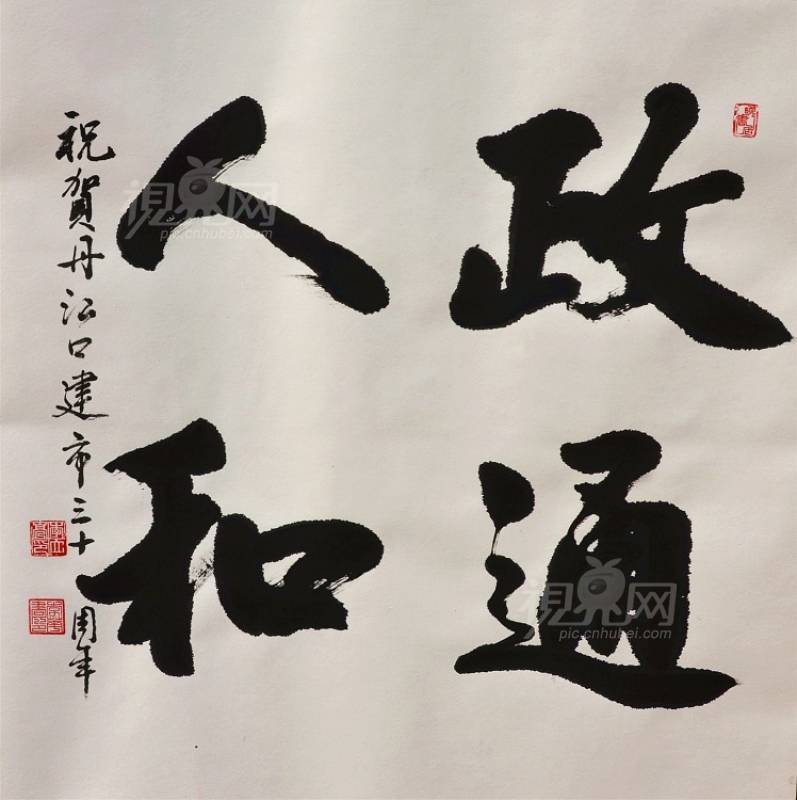 政通
人和
祝贺丹江口建市三十周年
視界网
pic.cnhubei.com
視界网
pic.cnhubei.com